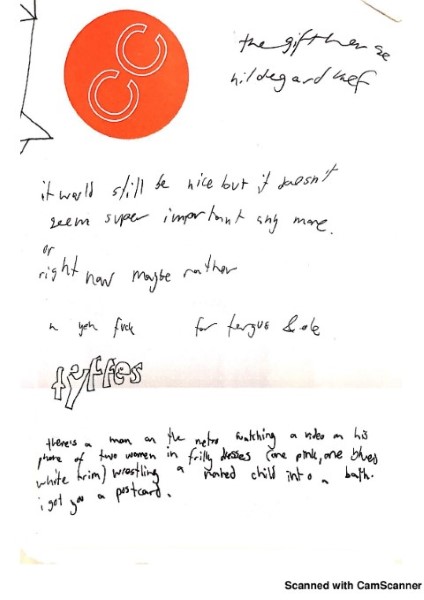 the gift
hildegard knef
it would still be nice but it doesn't
seem super important any more.
or
right now maybe rather
yeh fuck for fergus &
fyffes
there's a man on the metro watching a video on his
phone of two women in frilly dresses (one pink, one blue,
white trim) wrestling a naked child into a bath.
i got you a postcard.
Scanned with CamScanner